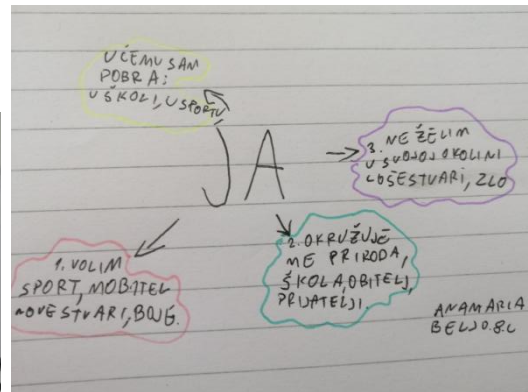 U ČEMU SAM
DOBRA:
U ŠKOLI, U SPORTU
JA
3. NE ŽELIM
U SVOJOJ OKOLINI
LOŠE STVARI, ZLO
1. VOLIM
SPORT, MOBITEL
NOVE STVARI, BOJE.
2. OKRUŽUJE
ME PRIRODA,
ŠKOLA, OBITELJ,
PRIJATELJI.
ANAMARIA